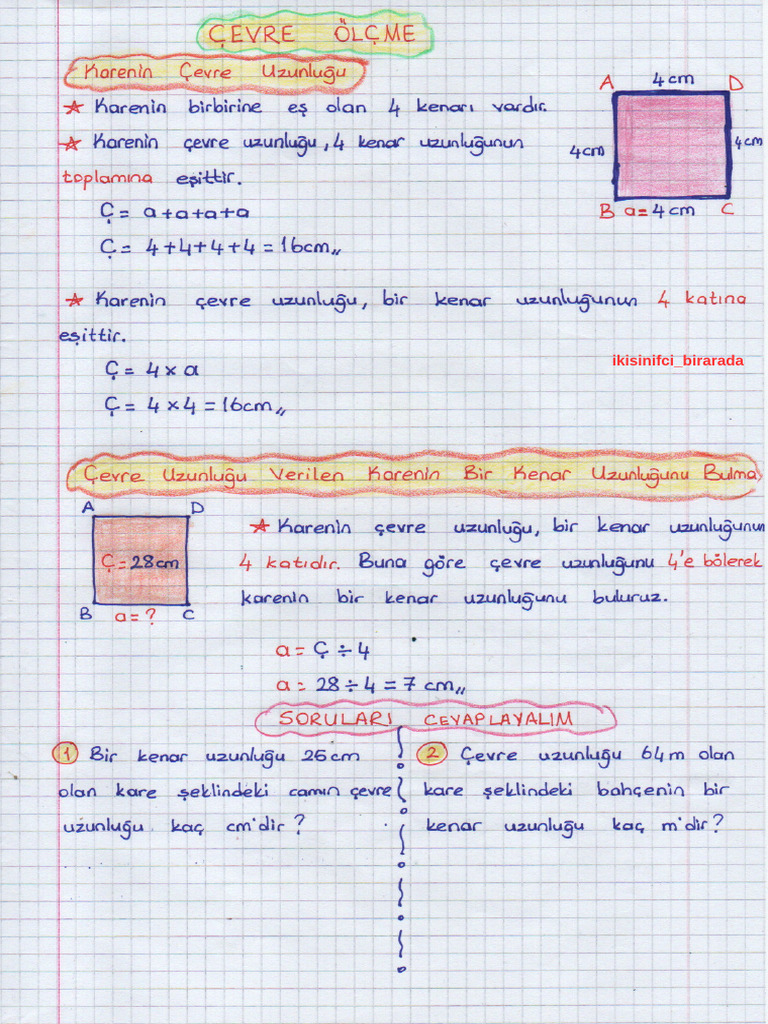 ÇEVRE ÖLÇME
Karenin Çevre Uzunluğu
Karenin birbirine eş olan 4 kenarı vardır.
Karenin çevre uzunluğu, 4 kenar uzunluğunun
toplamına eşittir.
Ç = a+a+a+a
Ç = 4+4+4+4 = 16cm,,
A 4cm D
4cm 4cm
B a=4cm C
Karenin çevre uzunluğu, bir kenar uzunluğunun 4 katına
eşittir.
ikisinifci_birarada
Ç = 4 x a
Ç = 4 x 4 = 16cm,,
Çevre Uzunluğu Verilen Karenin Bir Kenar Uzunluğunu Bulma
A D
Ç=28cm
B a=? C
Karenin çevre uzunluğu, bir kenar uzunluğunun
4 katıdır. Buna göre çevre uzunluğunu 4'e bölerek
karenin bir kenar uzunluğunu buluruz.
a = Ç ÷ 4
a = 28 ÷ 4 = 7 cm,,
SORULARI CEVAPLAYALIM
1 Bir kenar uzunluğu 25cm
olan kare şeklindeki camın çevre
uzunluğu kaç cm'dir?
2 Çevre uzunluğu 64m olan
kare şeklindeki bahçenin bir
kenar uzunluğu kaç m'dir?